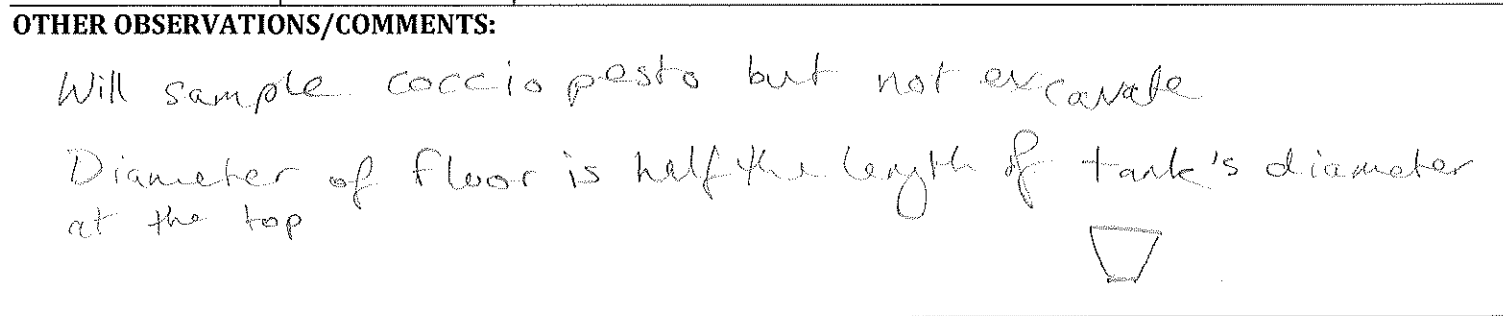 OTHER OBSERVATIONS/COMMENTS:
Will sample coccio pesto but not excavate
Diameter of floor is half the length of tank's diameter
at the top